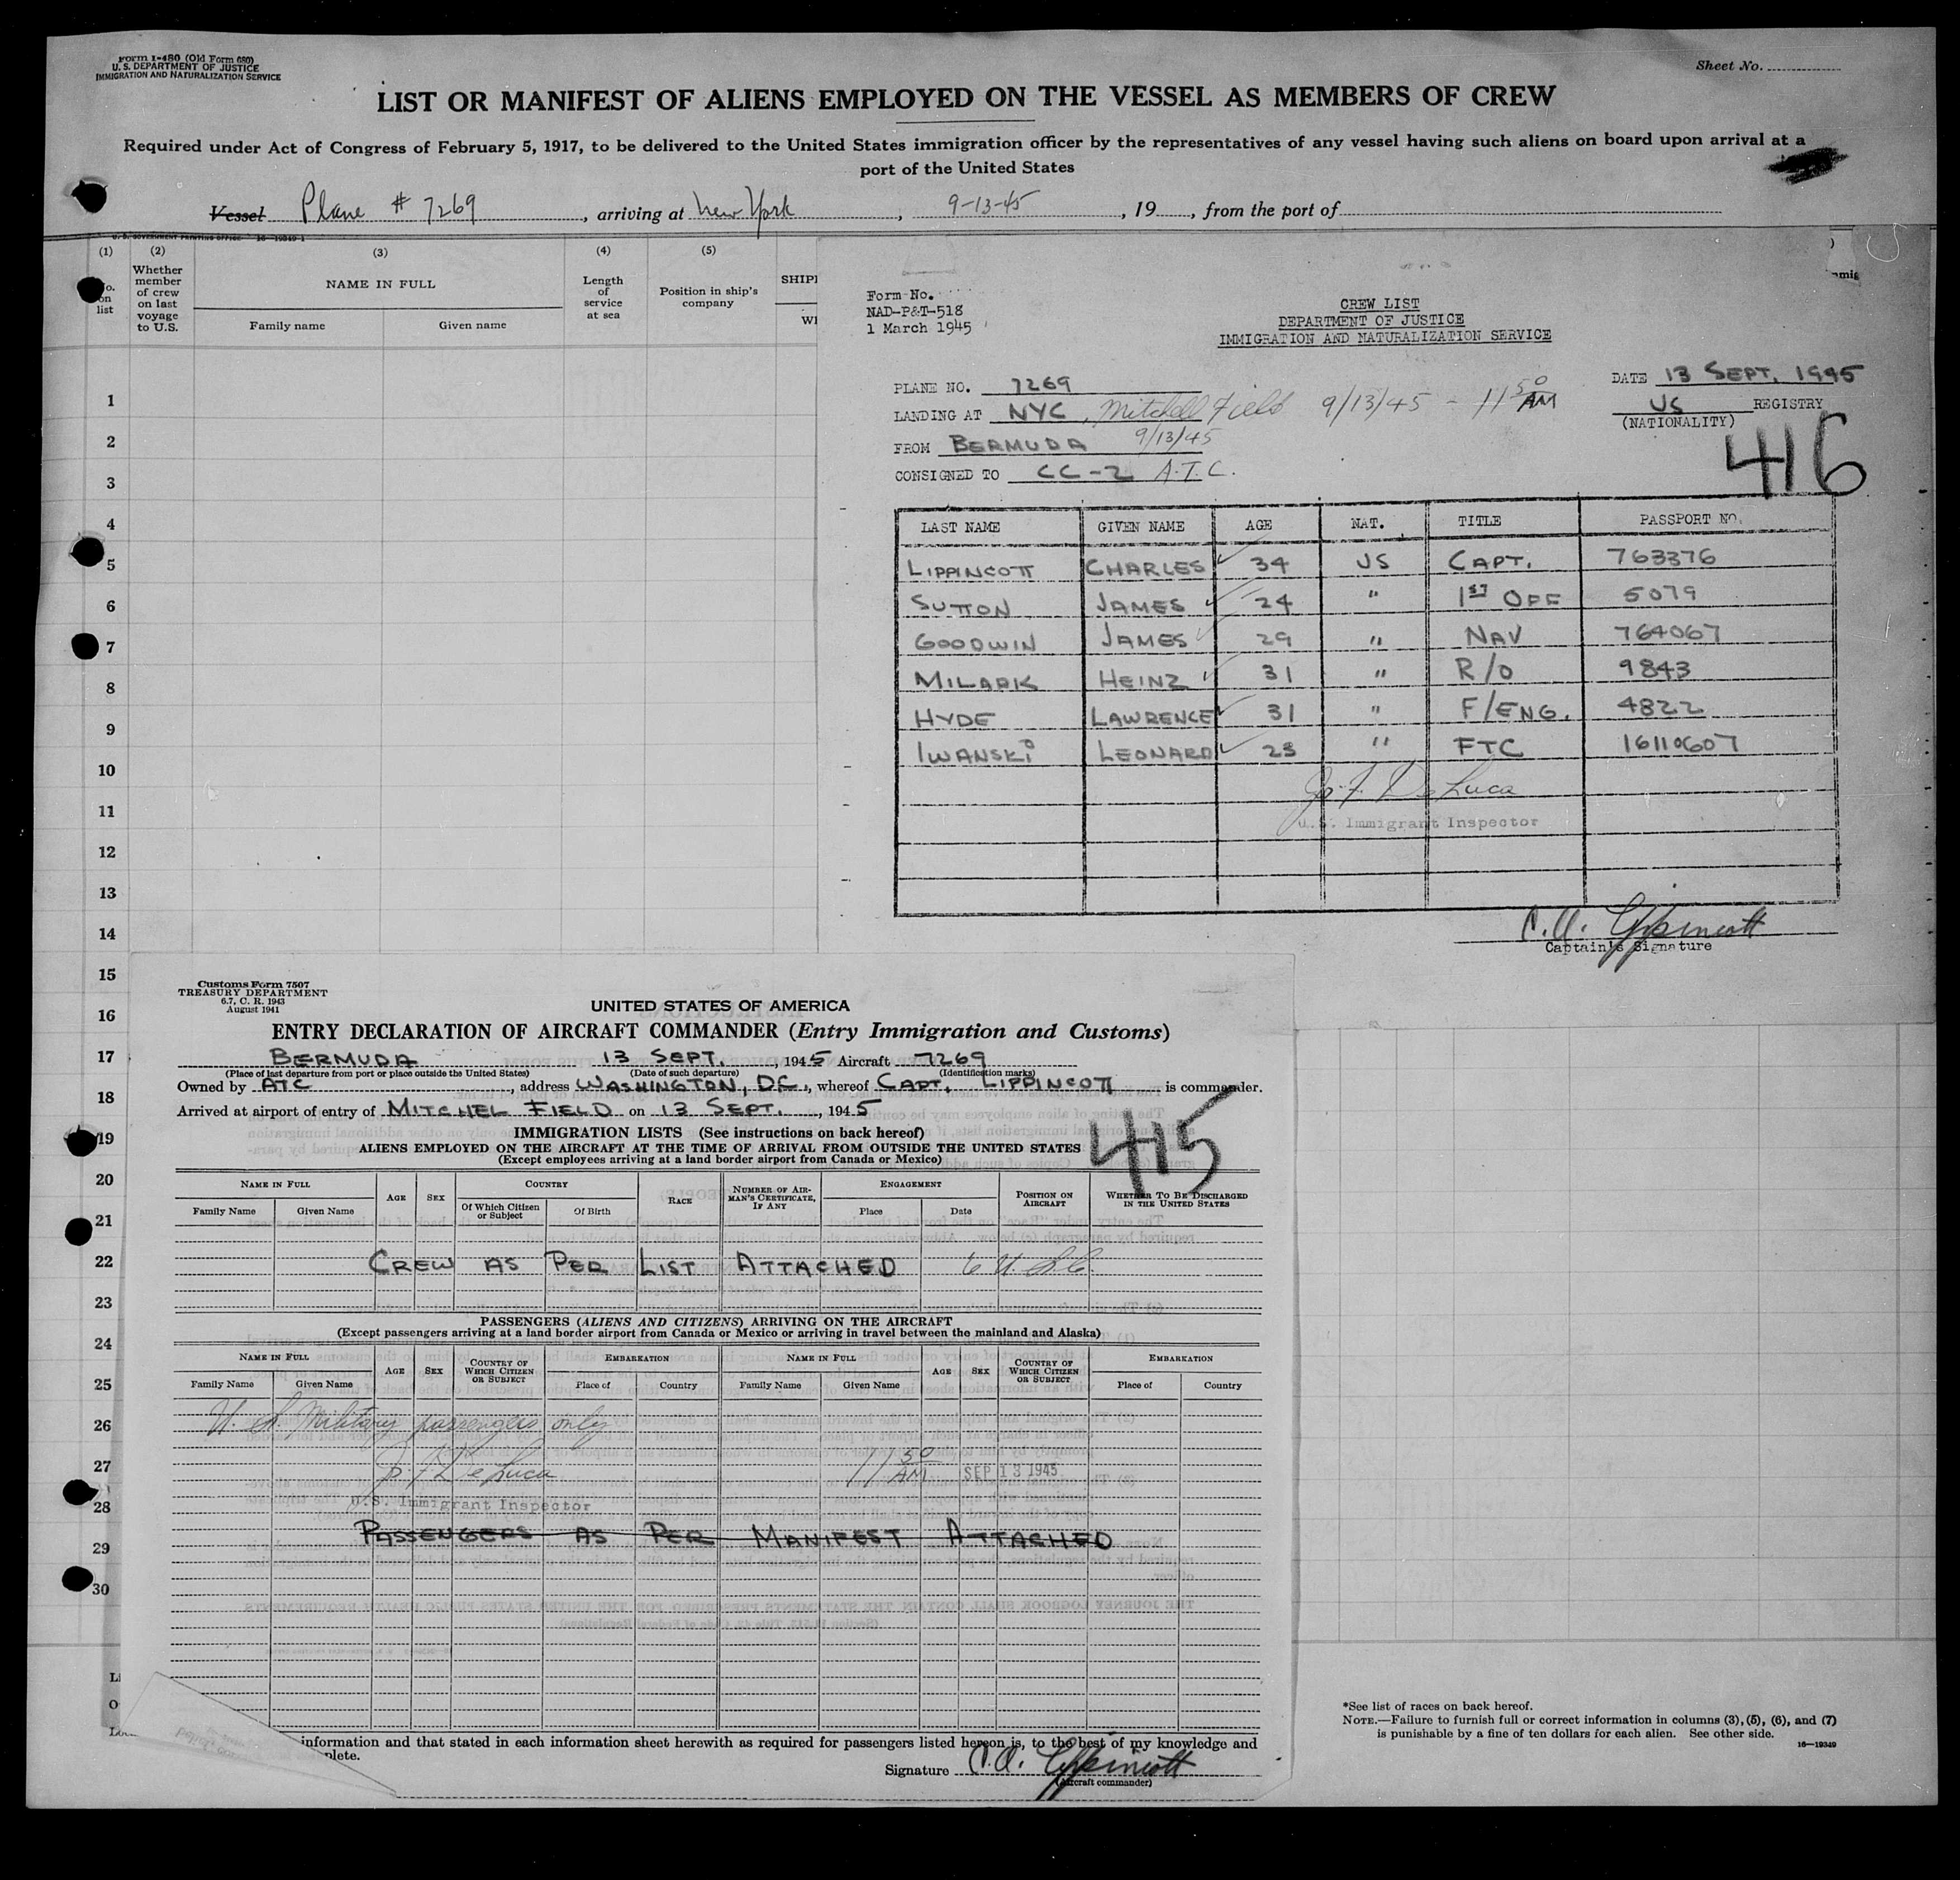 Form I-480 (Old Form 680)
U. S. DEPARTMENT OF JUSTICE
IMMIGRATION AND NATURALIZATION SERVICE
Sheet No.
LIST OR MANIFEST OF ALIENS EMPLOYED ON THE VESSEL AS MEMBERS OF CREW
Required under Act of Congress of February 5, 1917, to be delivered to the United States immigration officer by the representatives of any vessel having such aliens on board upon arrival at a
port of the United States
Vessel Plane # 7269, arriving at New York, 9-13-45, 19, from the port of
U. S. GOVERNMENT PRINTING OFFICE 16-19349-1
(1) (2) (3) (4) (5)
No. on list
Whether member of crew on last voyage to U.S.
NAME IN FULL
Family name Given name
Length of service at sea
Position in ship's company
SHIPI
WI
Form No.
NAD-P&T-518
1 March 1945
CREW LIST
DEPARTMENT OF JUSTICE
IMMIGRATION AND NATURALIZATION SERVICE
PLANE NO. 7269
DATE 13 SEPT. 1945
LANDING AT NYC, Mitchell Field 9/13/45 - 11 50 AM
US REGISTRY
(NATIONALITY)
FROM BERMUDA 9/13/45
CONSIGNED TO CC-2 A.T.C.
416
LAST NAME GIVEN NAME AGE NAT. TITLE PASSPORT NO.
LIPPINCOTT CHARLES 34 US CAPT. 763376
SUTTON JAMES 24 " 1ST OFF 5079
GOODWIN JAMES 29 " NAV 764067
MILARK HEINZ 31 " R/O 9843
HYDE LAWRENCE 31 " F/ENG. 4822
IWANSKI LEONARD 23 " FTC 16110607
Jo. F. De Luca
U.S. Immigrant Inspector
C.A. Lippincott
Captain's Signature
1
2
3
4
5
6
7
8
9
10
11
12
13
14
15
16
17
18
19
20
21
22
23
24
25
26
27
28
29
30
Customs Form 7507
TREASURY DEPARTMENT
6.7, C. R. 1943
August 1941
UNITED STATES OF AMERICA
ENTRY DECLARATION OF AIRCRAFT COMMANDER (Entry Immigration and Customs)
BERMUDA 13 SEPT., 1945 Aircraft 7269
(Place of last departure from port or place outside the United States) (Date of such departure) (Identification marks)
Owned by ATC, address WASHINGTON, DC., whereof CAPT. LIPPINCOTT is commander.
Arrived at airport of entry of MITCHEL FIELD on 13 SEPT., 1945
415
IMMIGRATION LISTS (See instructions on back hereof)
ALIENS EMPLOYED ON THE AIRCRAFT AT THE TIME OF ARRIVAL FROM OUTSIDE THE UNITED STATES
(Except employees arriving at a land border airport from Canada or Mexico)
NAME IN FULL AGE SEX COUNTRY RACE NUMBER OF AIRMAN'S CERTIFICATE, IF ANY ENGAGEMENT POSITION ON AIRCRAFT WHETHER TO BE DISCHARGED IN THE UNITED STATES
Family Name Given Name Of Which Citizen or Subject Of Birth Place Date
CREW AS PER LIST ATTACHED 6 U.S.C.
PASSENGERS (ALIENS AND CITIZENS) ARRIVING ON THE AIRCRAFT
(Except passengers arriving at a land border airport from Canada or Mexico or arriving in travel between the mainland and Alaska)
NAME IN FULL AGE SEX COUNTRY OF WHICH CITIZEN OR SUBJECT EMBARKATION NAME IN FULL AGE SEX COUNTRY OF WHICH CITIZEN OR SUBJECT EMBARKATION
Family Name Given Name Place of Country Family Name Given Name Place of Country
U. S. Military passengers only
Jo. F. De Luca 11 50 AM SEP 13 1945
U.S. Immigrant Inspector
PASSENGERS AS PER MANIFEST ATTACHED
information and that stated in each information sheet herewith as required for passengers listed hereon is, to the best of my knowledge and
plete.
Signature C.A. Lippincott
(Aircraft commander)
*See list of races on back hereof.
NOTE.—Failure to furnish full or correct information in columns (3), (5), (6), and (7)
is punishable by a fine of ten dollars for each alien. See other side.
16-19349